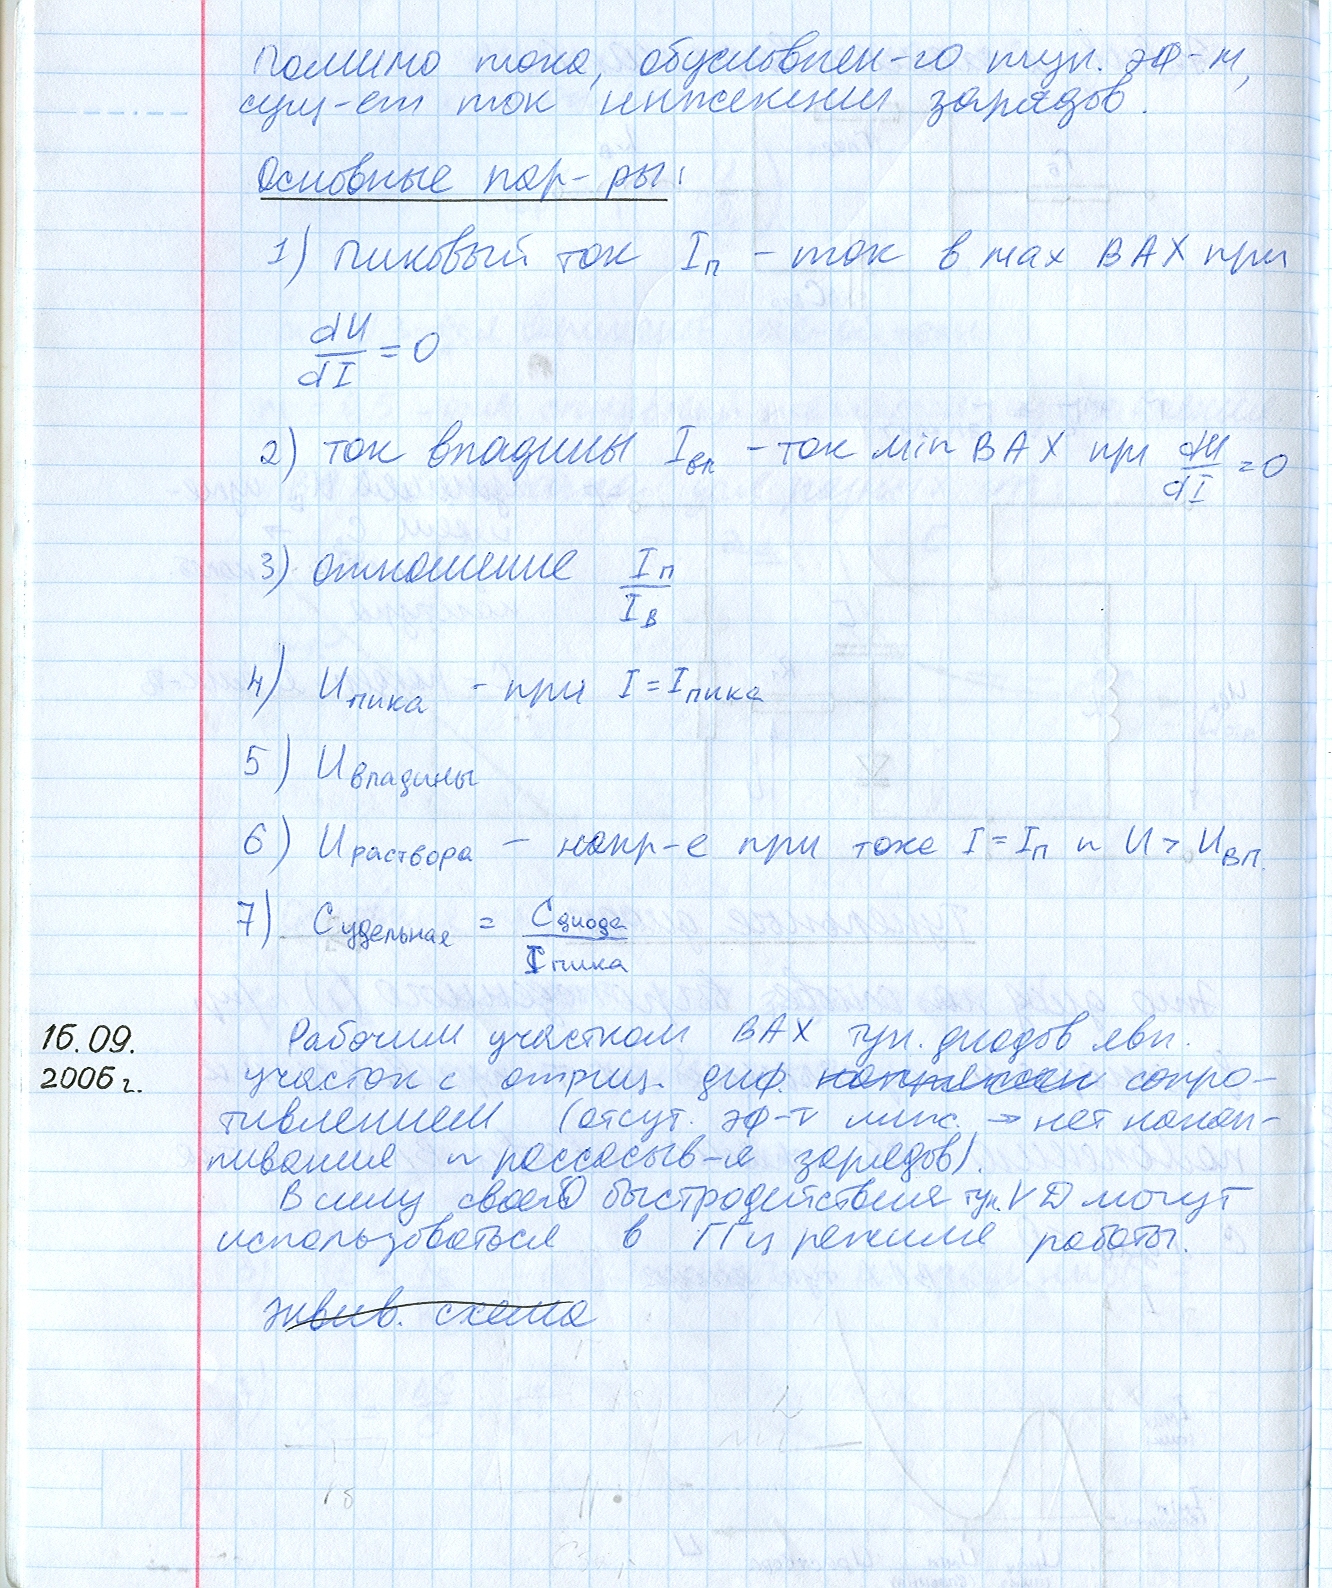 Помимо тока, обусловлен-го тун. эф-м,
сущ-ет ток инжекции зарядов.
Основные пар-ры:
1) Пиковый ток Iп – ток в max ВАХ при
dU/dI = 0
2) ток впадины Iвп – ток min ВАХ при dU/dI = 0
3) отношение Iп/Iв
4) Uпика – при I = Iпика
5) Uвпадины
6) Uраствора – напр-е при токе I = Iп и U > Uвп.
7) Cудельная = Cдиода/Iпика
16.09.
2006 г.
Рабочим участком ВАХ тун. диодов явл.
участок с отриц. диф. сопро-
тивлением (отсут. эф-т инж. → нет накап-
ливания и рассасыв-я зарядов).
В силу своего быстродействия тун. VD могут
использоваться в ГГц режиме работы.
Эквив. схема